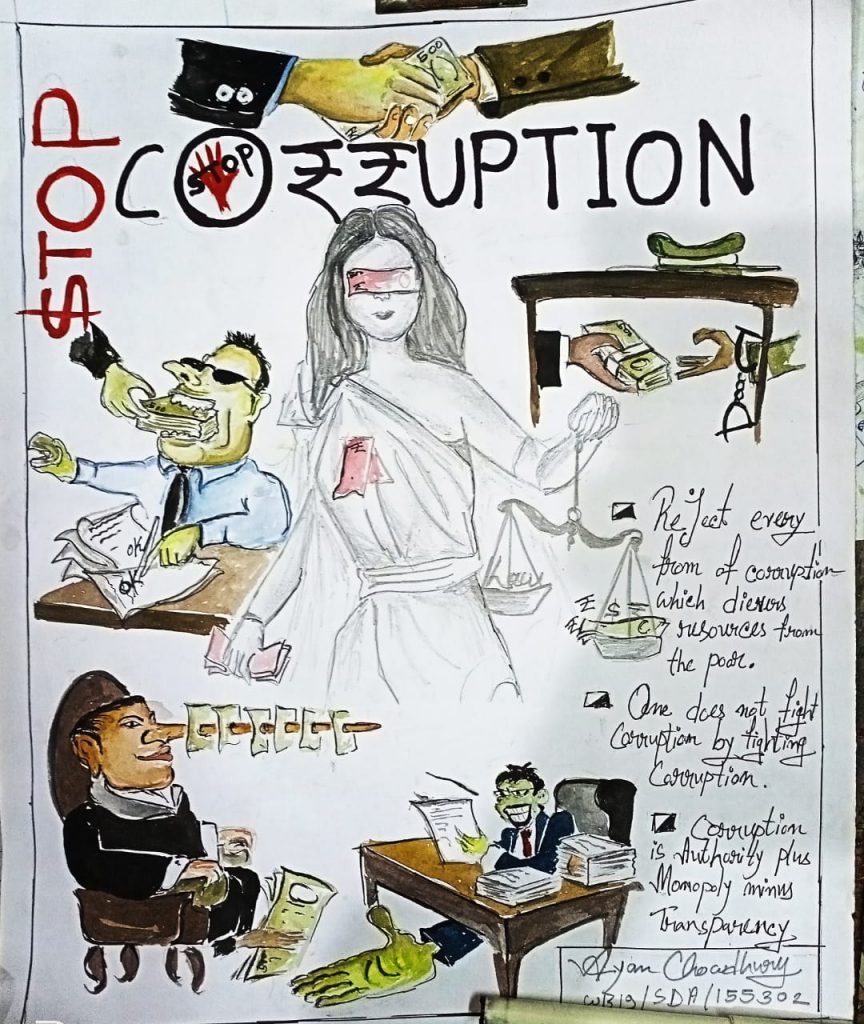 $TOP
C STOP ₹₹UPTION
500
OK
OK
Law
₹ S €
Reject every
from of corruption
which dierurs
resources from
the poor.
One does not fight
Corruption by fighting
Corruption.
Corruption
is Authority plus
Monopoly minus
Transparency
Ayan Chowdhury
WB19/SDA/155302